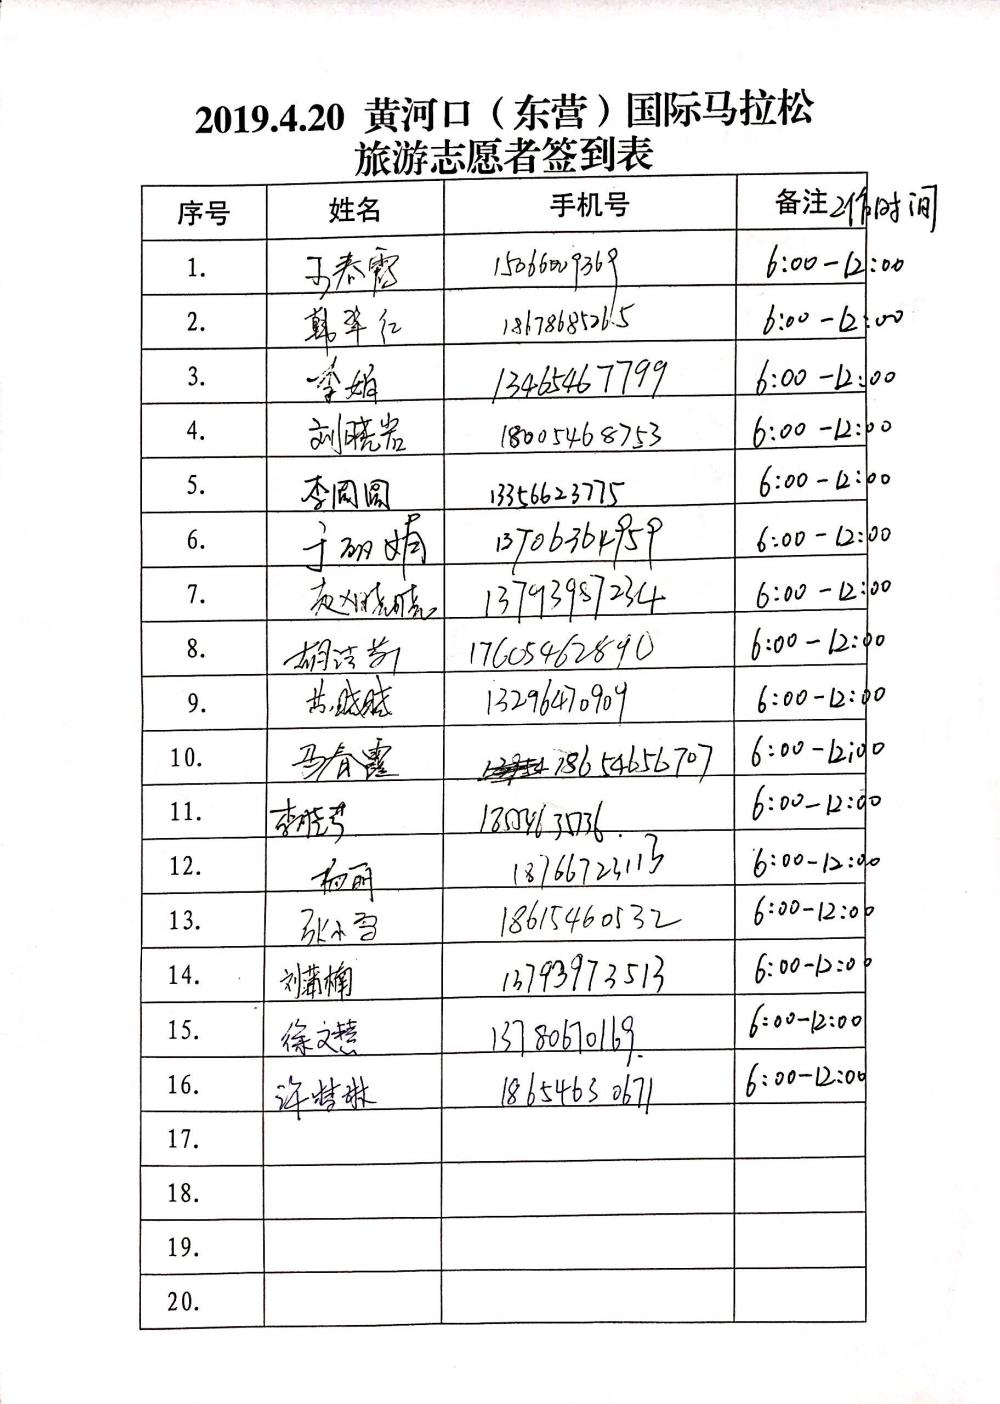 2019.4.20 黄河口（东营）国际马拉松
旅游志愿者签到表
序号 姓名 手机号 备注 工作时间
1. 于春霞 15066009369 6:00-12:00
2. 韩翠红 18678685265 6:00-12:00
3. 李娟 13465467799 6:00-12:00
4. 刘晓岩 18005468753 6:00-12:00
5. 李圆圆 13356623775 6:00-12:00
6. 于丽娟 13706364959 6:00-12:00
7. 赵晓晓 13793987234 6:00-12:00
8. 胡洁 17605462890 6:00-12:00
9. 苏晓晓 13296470909 6:00-12:00
10. 马春霞 18654656707 6:00-12:00
11. 李晓芳 6:00-12:00
12. 杨丽 18766723113 6:00-12:00
13. 张小雪 18615460532 6:00-12:00
14. 刘蒲楠 13793973513 6:00-12:00
15. 徐文慧 13780670169 6:00-12:00
16. 许特琳 18654630671 6:00-12:00
17.
18.
19.
20.